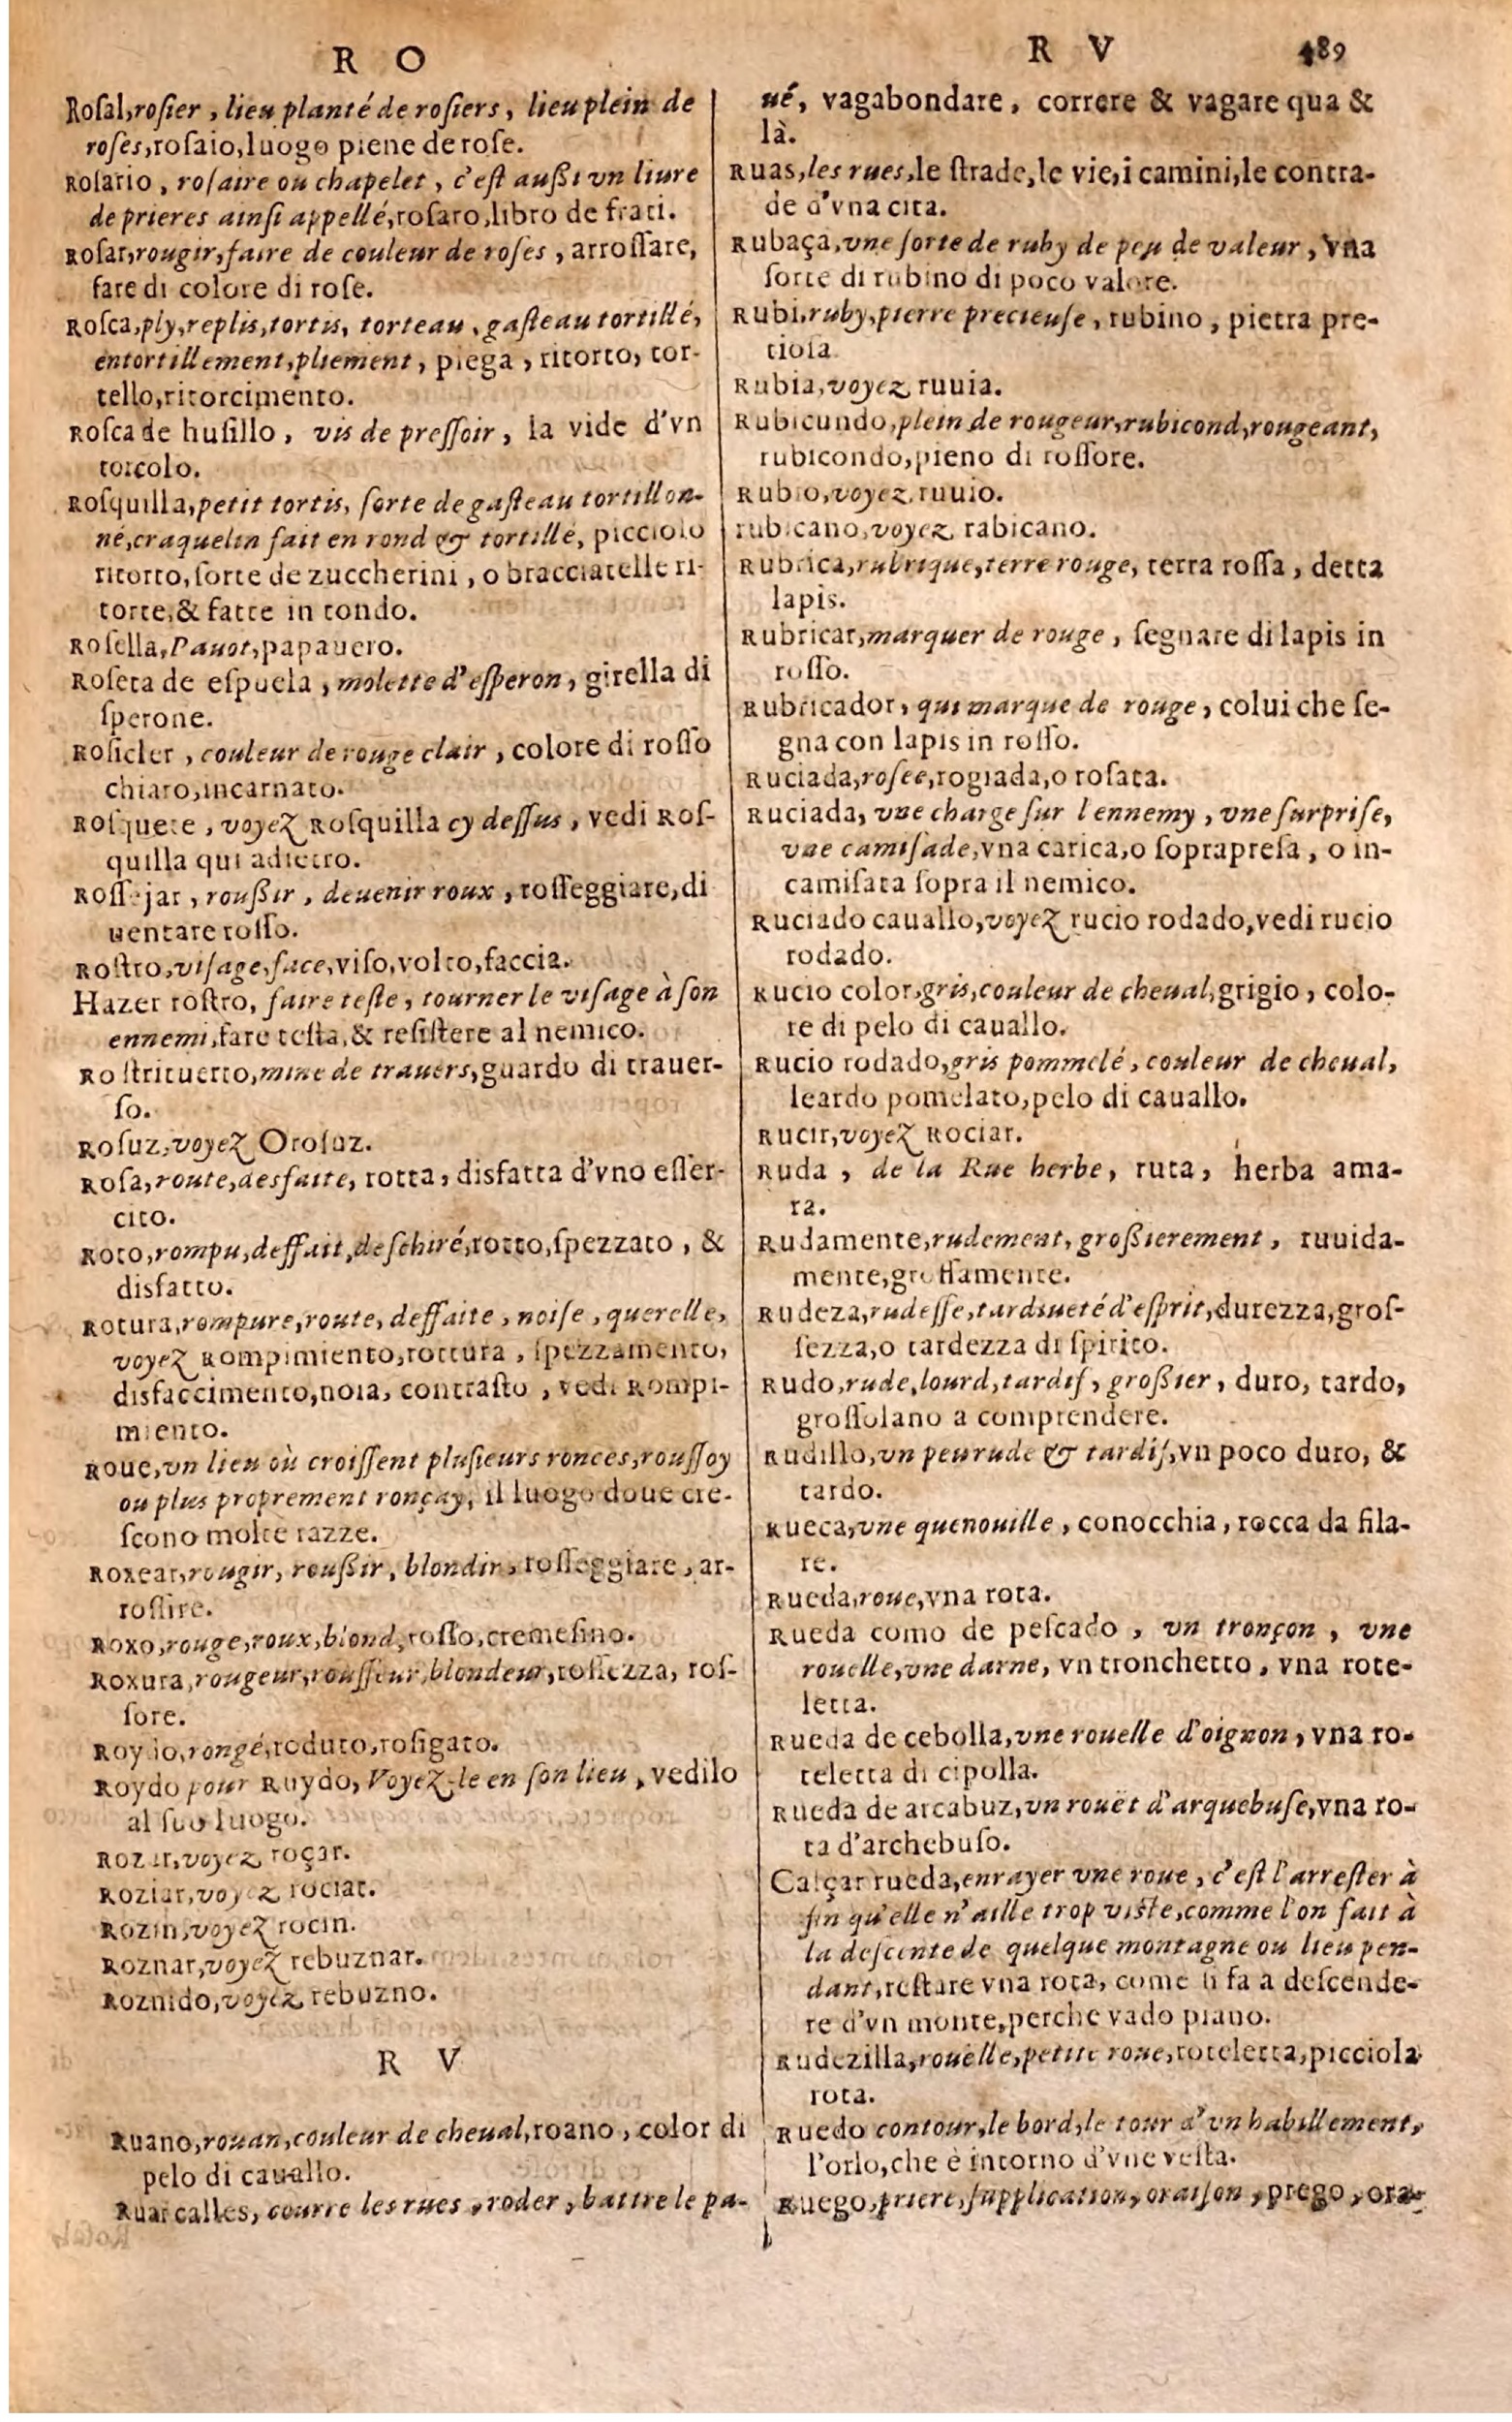 R O
Rosal, rosier, lieu planté de rosiers, lieu plein de
roses, rosaio, luogo piene de rose.
Rosario, rosaire ou chapelet, c'est aussi vn liure
de prieres ainsi appellé, rosaro, libro de frati.
Rosar, rougir, faire de couleur de roses, arrossare,
fare di colore di rose.
Rosca, ply, replis, tortis, torteau, gasteau tortillé,
entortillement, pliement, piega, ritorto, tor-
tello, ritorcimento.
Rosca de husillo, vis de pressoir, la vide d'vn
torcolo.
Rosquilla, petit tortis, sorte de gasteau tortillon-
né, craquelin fait en rond & tortillé, picciolo
ritorto, sorte de zuccherini, o bracciatelle ri-
torte, & fatte in tondo.
Rosella, Pauot, papauero.
Roseta de espuela, molette d'esperon, girella di
sperone.
Rosicler, couleur de rouge clair, colore di rosso
chiaro, incarnato.
Rosquete, voyez Rosquilla cy dessus, vedi Ros-
quilla qui adietro.
Rossejar, roussir, deuenir roux, rosseggiare, di
uentare rosso.
Rostro, visage, face, viso, volto, faccia.
Hazer rostro, faire teste, tourner le visage à son
ennemi, fare testa, & resistere al nemico.
Rostrituerto, mine de trauers, guardo di trauer-
so.
Rosuz, voyez Orosuz.
Rosa, route, desfaite, rotta, disfatta d'vno esser-
cito.
Roto, rompu, deffait, deschiré, rotto, spezzato, &
disfatto.
Rotura, rompure, route, deffaite, noise, querelle,
voyez Rompimiento, rottura, spezzamento,
disfaccimento, noia, contrasto, vedi Rompi-
miento.
Roue, vn lieu où croissent plusieurs ronces, roussoy
ou plus proprement ronçay, il luogo doue cre-
scono molte razze.
Roxear, rougir, roussir, blondir, rosseggiare, ar-
rossire.
Roxo, rouge, roux, blond, rosso, cremesino.
Roxura, rougeur, rousseur, blondeur, rossezza, ros-
sore.
Roydo, rongé, roduto, rosigato.
Roydo pour Ruydo, Voyez-le en son lieu, vedilo
al suo luogo.
Rozar, voyez roçar.
Roziar, voyez rociar.
Rozin, voyez rocin.
Roznar, voyez rebuznar.
Roznido, voyez rebuzno.
R V
Ruano, rouan, couleur de cheual, roano, color di
pelo di cauallo.
Ruar calles, courre les rues, roder, battre le pa-
R V 489
ué, vagabondare, correre & vagare qua &
là.
Ruas, les rues, le strade, le vie, i camini, le contra-
de d'vna cita.
Rubaça, vne sorte de ruby de peu de valeur, vna
sorte di rubino di poco valore.
Rubi, ruby, pierre precieuse, rubino, pietra pre-
tiosa.
Rubia, voyez ruuia.
Rubicundo, plein de rougeur, rubicond, rougeant,
rubicondo, pieno di rossore.
Rubio, voyez ruuio.
rubicano, voyez rabicano.
Rubrica, rubrique, terre rouge, terra rossa, detta
lapis.
Rubricar, marquer de rouge, segnare di lapis in
rosso.
Rubricador, qui marque de rouge, colui che se-
gna con lapis in rosso.
Ruciada, rosee, rogiada, o rosata.
Ruciada, vne charge sur l ennemy, vne surprise,
vne camisade, vna carica, o soprapresa, o in-
camisata sopra il nemico.
Ruciado cauallo, voyez rucio rodado, vedi rucio
rodado.
Rucio color, gris, couleur de cheual, grigio, colo-
re di pelo di cauallo.
Rucio rodado, gris pommelé, couleur de cheual,
leardo pomelato, pelo di cauallo.
Rucir, voyez Rociar.
Ruda, de la Rue herbe, ruta, herba ama-
ra.
Rudamente, rudement, grossierement, ruuida-
mente, grossamente.
Rudeza, rudesse, tardiueté d'esprit, durezza, gros-
sezza, o tardezza di spirito.
Rudo, rude, lourd, tardif, grossier, duro, tardo,
grossolano a comprendere.
Rudillo, vn peu rude & tardif, vn poco duro, &
tardo.
Rueca, vne quenouille, conocchia, rocca da fila-
re.
Rueda, roue, vna rota.
Rueda como de pescado, vn tronçon, vne
rouelle, vne darne, vn tronchetto, vna rote-
letta.
Rueda de cebolla, vne rouelle d'oignon, vna ro-
teletta di cipolla.
Rueda de arcabuz, vn rouët d'arquebuse, vna ro-
ta d'archebuso.
Calçar rueda, enrayer vne roue, c'est l'arrester à
fin qu'elle n'aille trop viste, comme l'on fait à
la descente de quelque montagne ou lieu pen-
dant, restare vna rota, come si fa a descende-
re d'vn monte, perche vado piano.
Rudezilla, rouëlle, petite roue, roteletta, picciola
rota.
Ruedo contour, le bord, le tour d'vn habillement,
l'orlo, che è intorno d'vne vesta.
Ruego, priere, supplication, oraison, prego, ora-